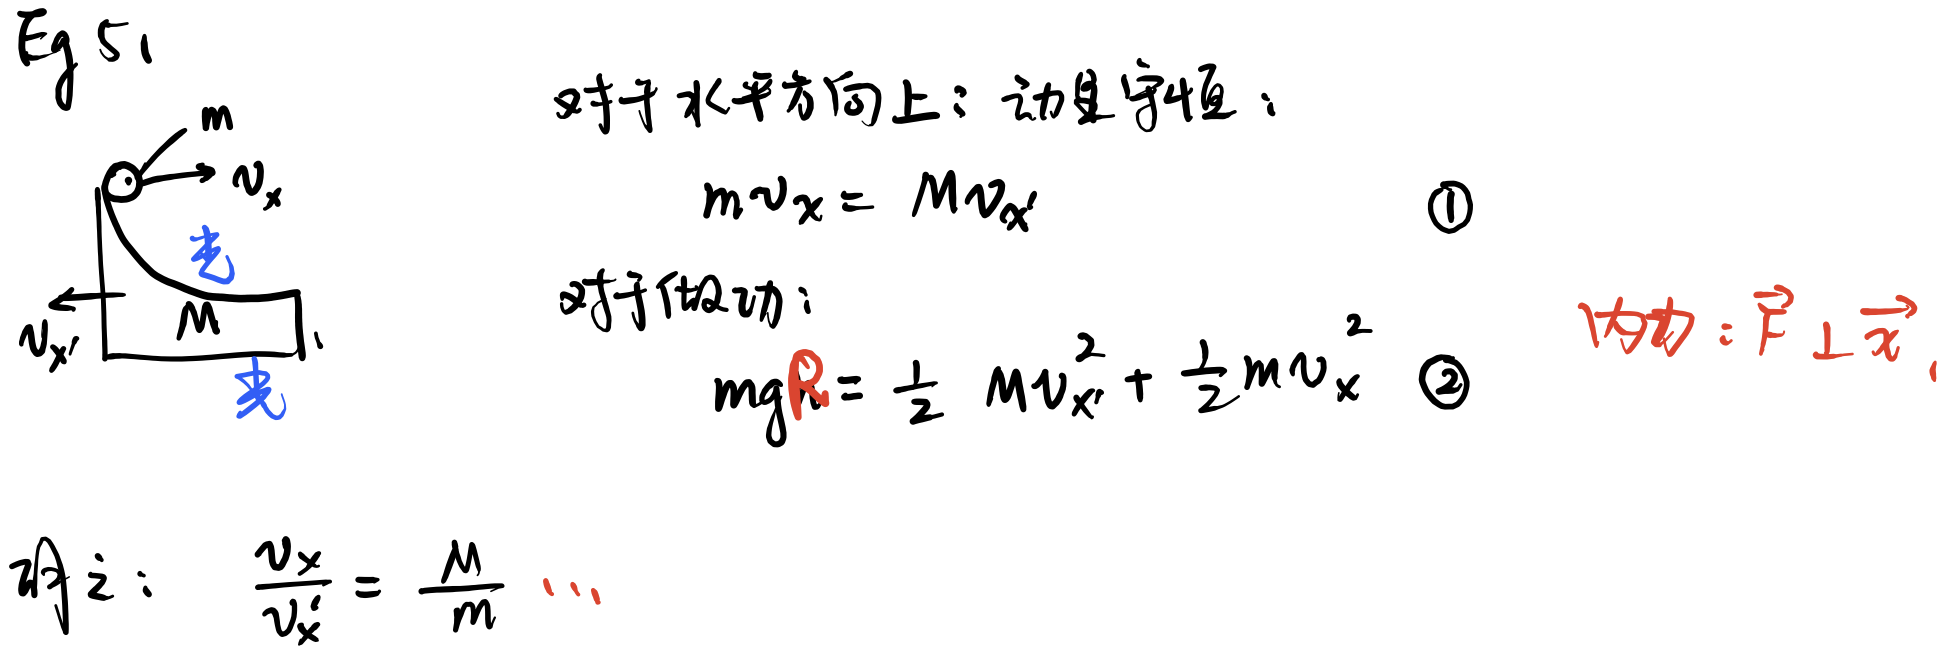 Eg 5.
m
v_x
光
M
v_x'
光
对于水平方向上：动量守恒：
m v_x = M v_x' ①
对于做功：
mgR = 1/2 M v_x'^2 + 1/2 m v_x^2 ②
内力：F⃗ ⊥ x⃗.
解之： v_x / v_x' = M / m ...